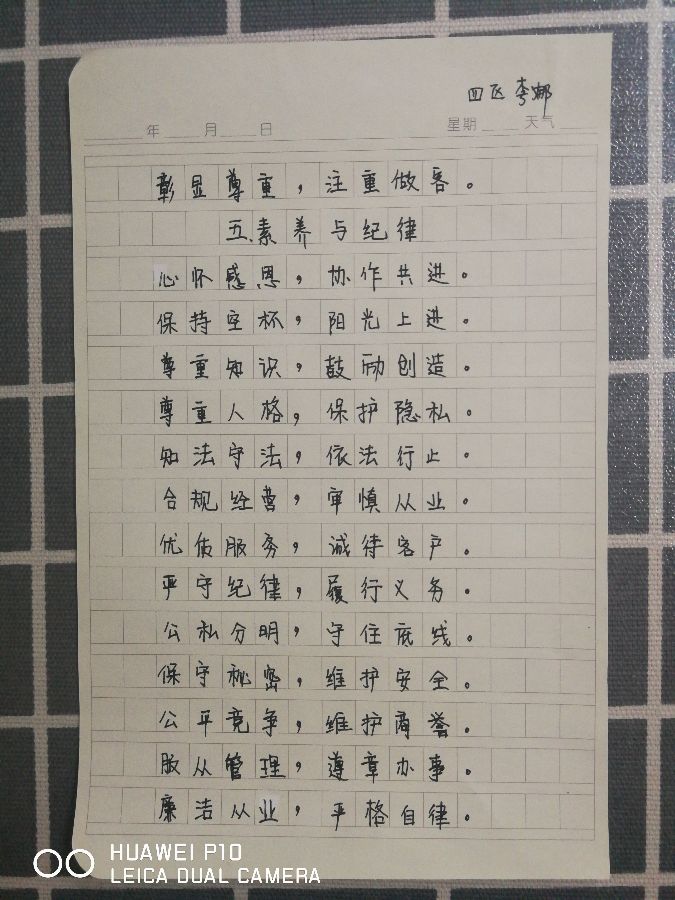 四区 李娜
年 月 日 星期 天气
彰显尊重，注重做客。
五、素养与纪律
心怀感恩，协作共进。
保持空杯，阳光上进。
尊重知识，鼓励创造。
尊重人格，保护隐私。
知法守法，依法行止。
合规经营，审慎从业。
优质服务，诚待客户。
严守纪律，履行义务。
公私分明，守住底线。
保守秘密，维护安全。
公平竞争，维护商誉。
服从管理，遵章办事。
廉洁从业，严格自律。
HUAWEI P10
LEICA DUAL CAMERA